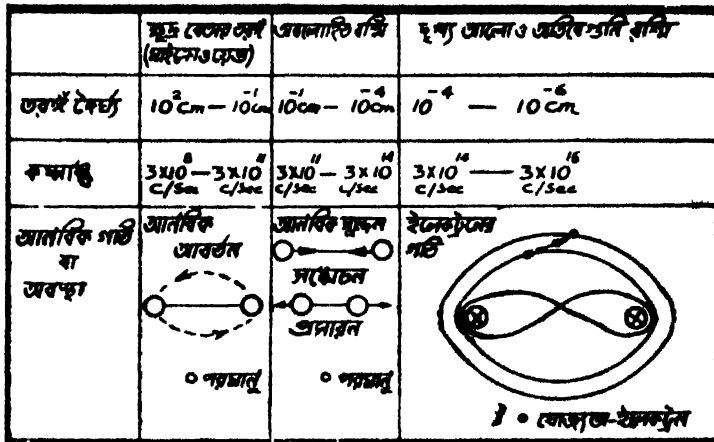 ক্ষুদ্র বেতার তরঙ্গ
(মাইক্রোওয়েভ)
অবলোহিত রশ্মি
দৃশ্য আলো ও অতিবেগুনি রশ্মি
তরঙ্গ দৈর্ঘ্য
10² cm — 10⁻¹ cm
10⁻¹ cm — 10⁻⁴ cm
10⁻⁴ — 10⁻⁶ cm
কম্পাঙ্ক
3×10⁸ — 3×10¹¹
c/Sec c/Sec
3×10¹¹ — 3×10¹⁴
c/Sec c/Sec
3×10¹⁴ — 3×10¹⁶
c/Sec c/Sec
আনবিক গতি
বা
অবস্থা
আনবিক
আবর্তন
পরমানু
আনবিক স্পন্দন
সঙ্কোচন
প্রসারন
পরমানু
ইলেকট্রনের
গতি
যোজ্যতা-ইলেকট্রন